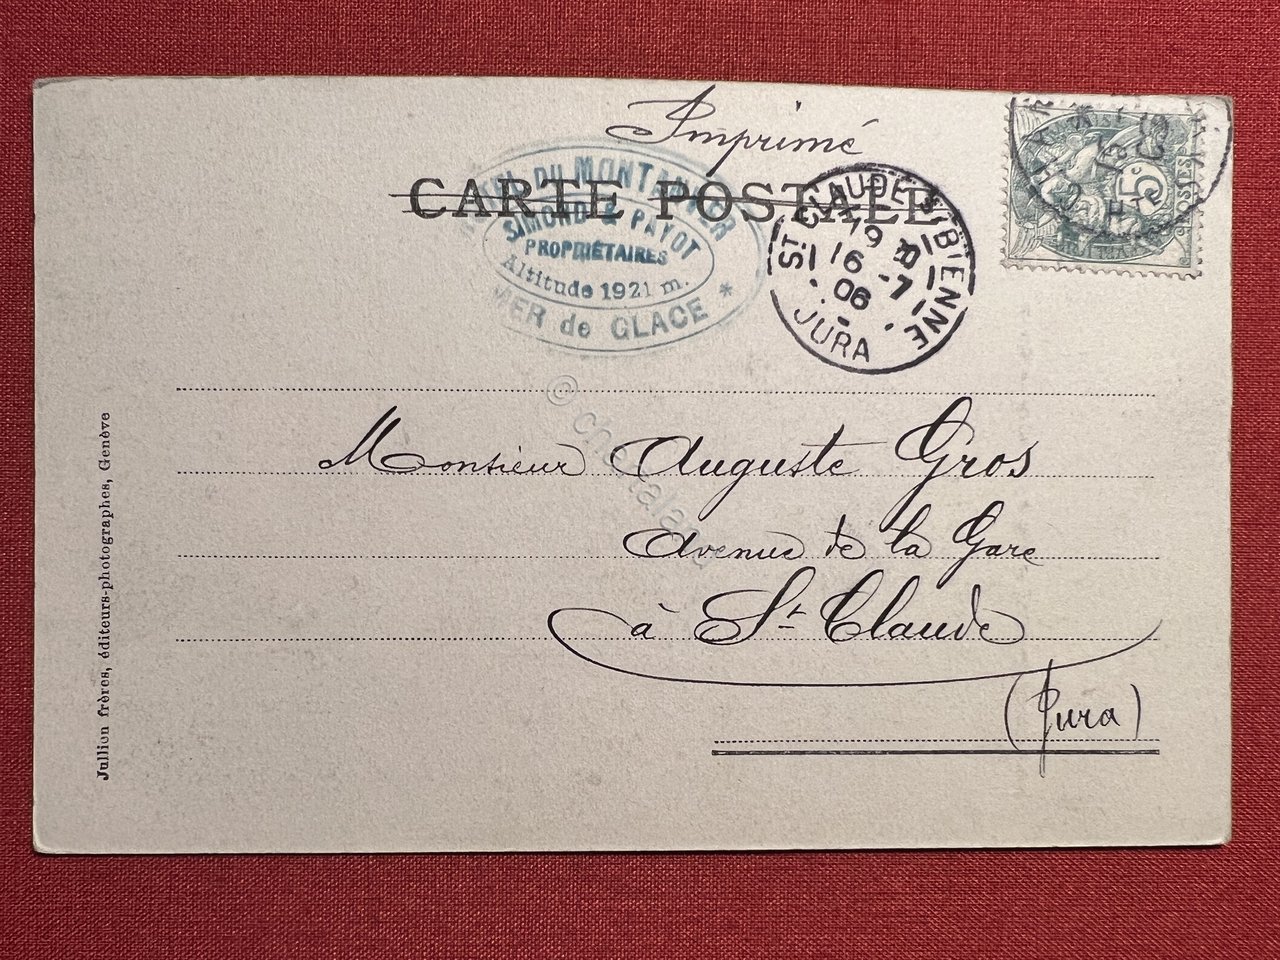 Imprimé
CARTE POSTALE
HOTEL DU MONTANVER
SIMOND & PAYOT
PROPRIÉTAIRES
Altitude 1921 m.
MER de GLACE *
ST CLAUDE S. BIENNE
16 -7
06
JURA
5c
POSTES
Monsieur Auguste Gros
Avenue de la Gare
à St Claude
(Jura)
Jullien frères, éditeurs-photographes, Genève